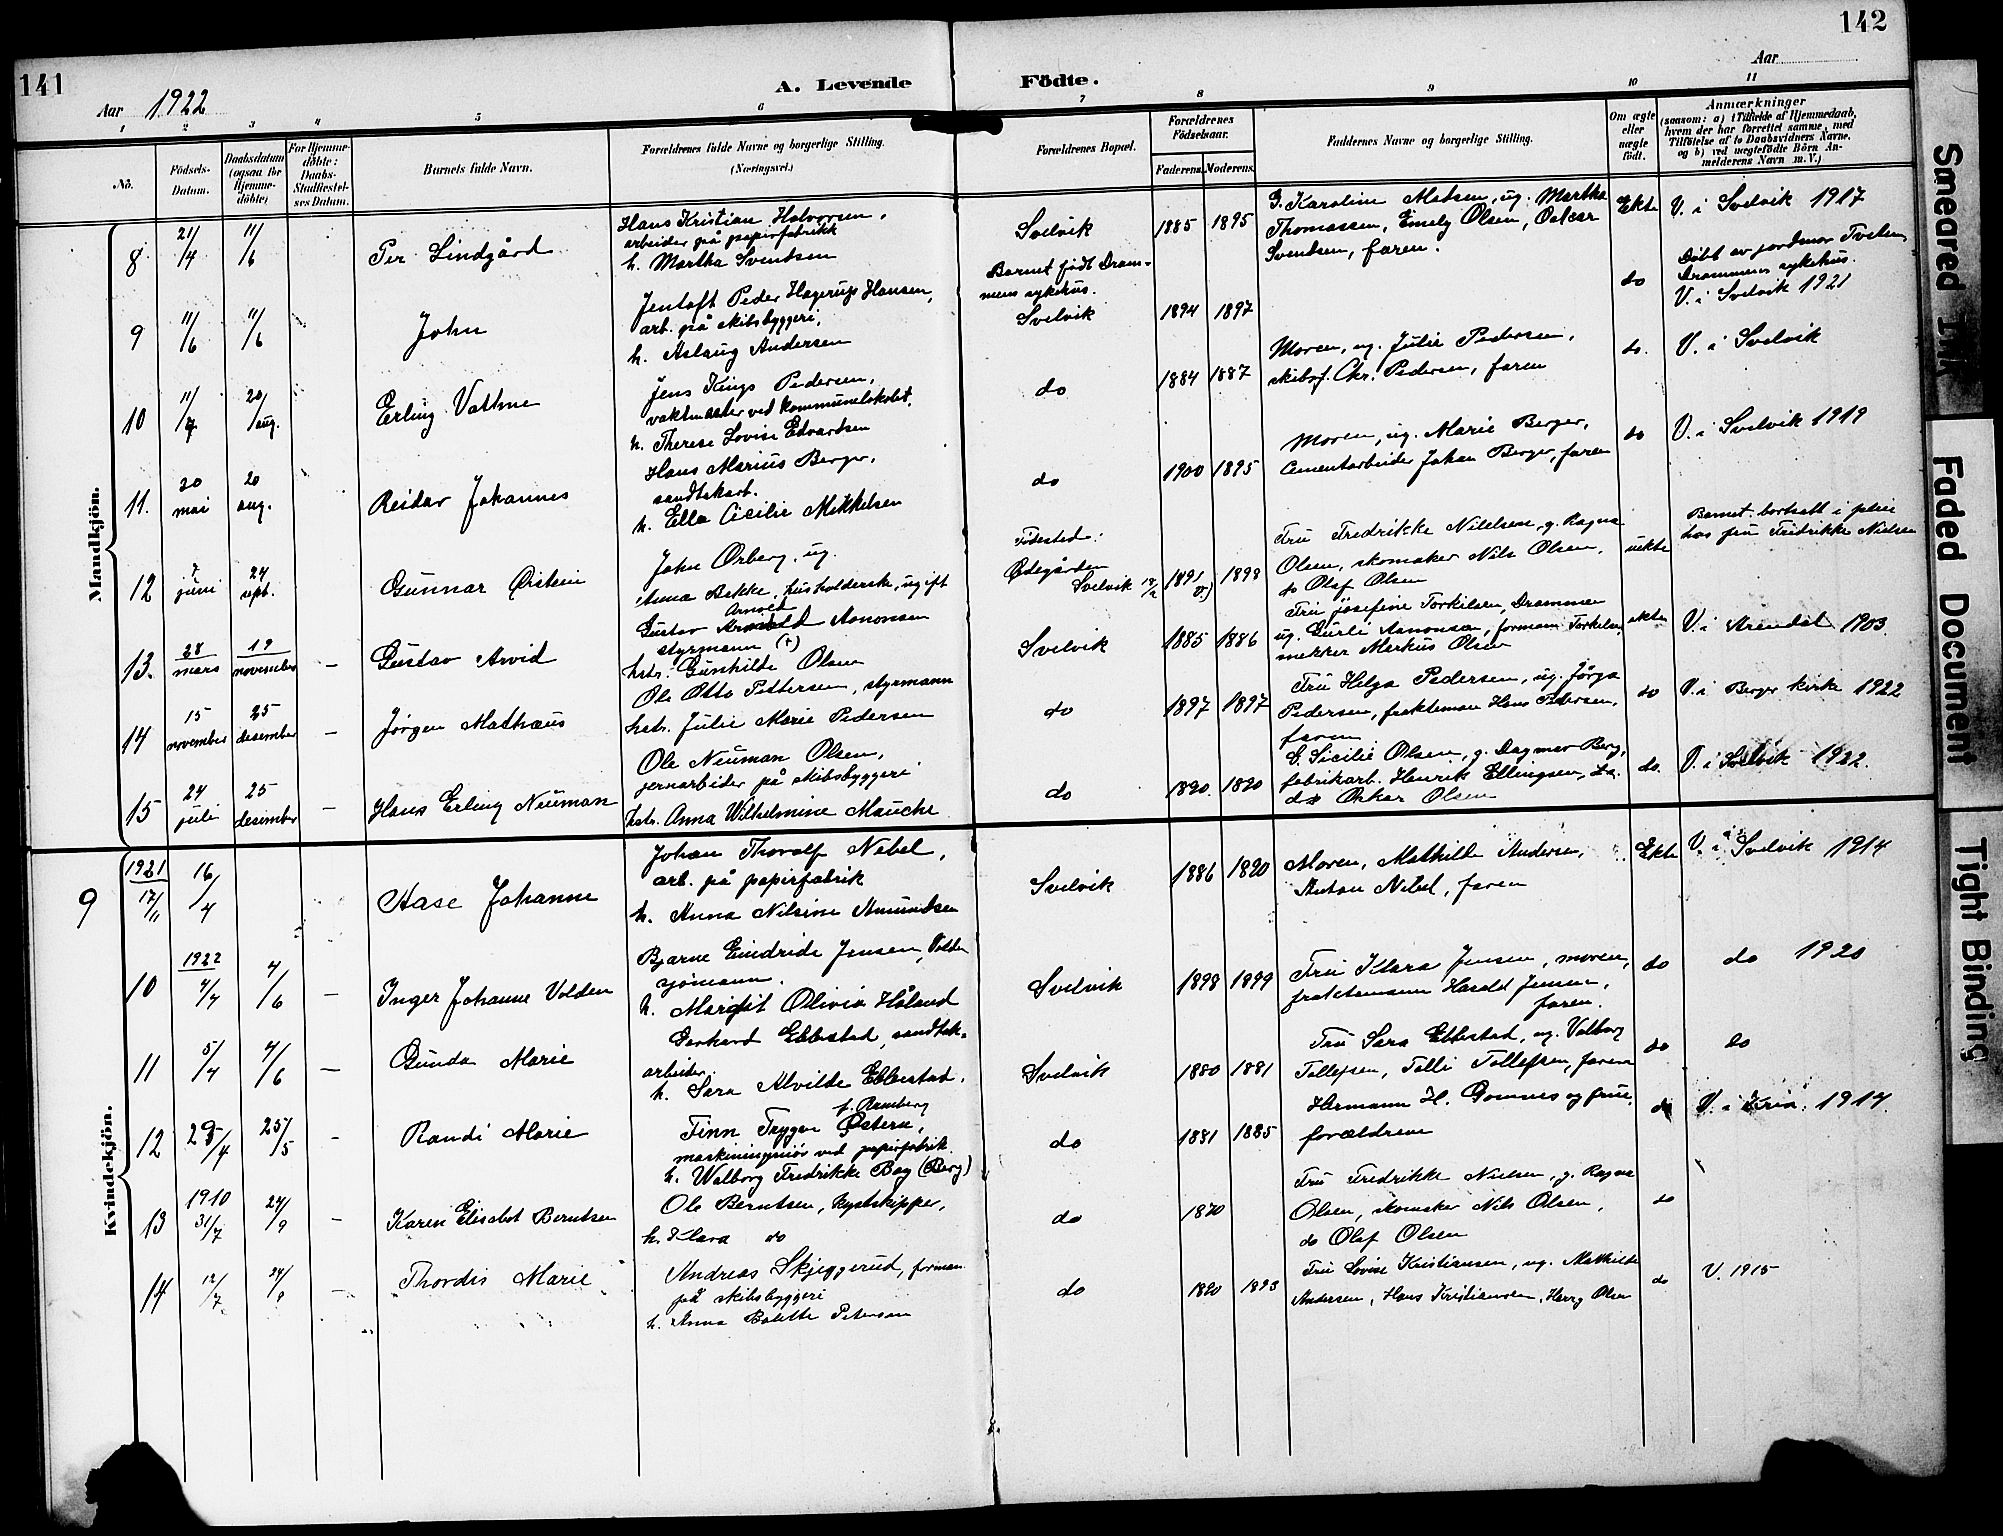 141
142
A. Levende Födte.
Aar 1922
Aar
1 2 3 4 5 6 7 8 9 10 11
No.
Födsels-Datum.
Daabsdatum (ogsaa for Hjemme-döbte)
For Hjemme-döbte: Daabs-Stadfæstel-ses Datum.
Barnets fulde Navn.
Forældrenes fulde Navne og borgerlige Stilling.
(Næringsvei.)
Forældrenes Bopæl.
Forældrenes Födselsaar.
Faderens. Moderens.
Faddernes Navne og borgerlige Stilling.
Om ægte eller uægte födt.
Anmærkninger
(saasom: a) i Tilfælde af Hjemmedaab, hvem der har forrettet samme, med Tilföielse af to Daabsvidners Navne, og b) ved uægtefödte Börn An-melderens Navn m. V.)
Mandkjön.
8 21/4 11/6 Per Lindgård
Hans Kristian Halvorsen,
arbeider på papirfabrikk
h. Martha Svendsen
Svelvik
Barnet født Dram-
mens sykehus.
1885 1895
G. Karoline Madsen, ug. Martha
Thomassen, Emely Olsen, Oskar
Svendsen, faren.
Ekte V. i Svelvik 1917
9 11/6 11/6 John
Jentoft Peder Hagerup Hansen,
arb. på skibsbyggeri,
h. Aslaug Andersen
Svelvik 1894 1897
do
Døbt av jordmor Tveten
Drammens sykehus.
V. i Svelvik 1921
10 11/7 20/aug. Erling Vattme
Jens Kings Pedersen,
vaktmester ved kommunelokalet,
h. Therese Lovise Edvardsen
do 1884 1887
Moren, ug. Julie Pedersen,
skibsf. Chr. Pedersen, faren
do. V. i Svelvik
11. 20 mai 20 aug. Reidar Johannes
Hans Marius Berger,
sandtakarb.
h. Ella Cicilie Mikkelsen
do 1900 1895
Moren, ug. Marie Berger,
Cementarbeider Johan Berger, faren
do V. i Svelvik 1919
12 7 juni 24 sept. Gunnar Øistein
John Ørberg, ug.
Anna Bakke, husholderske, ugift
Fødested:
Ødegården
Svelvik 1891 1898
Fru Fredrikke Nielsen, g. Ragna
Olsen, skomaker Nils Olsen,
do Olaf Olsen
uekte
Barnet bortsatt i pleie
hos fru Fredrikke Nielsen
13. 28 mars 19 november - Gustav Arvid
Arnold
Gustav Arnold Aanonsen
styrmann (+)
hstr. Gunhilde Olsen
Svelvik 1885 1886
Fru Josefine Torkilsen, Drammen
ug. Gurli Aanonsen, formann Torkilsen,
snekker Markus Olsen
ekte V. i Arendal 1903
14 15 november 25 desember - Jørgen Mathæus
Ole Otto Pettersen, styrmann
hstr. Julie Marie Pedersen
do 1897 1897
Fru Helga Pedersen, ug. Jørga
Pedersen, frakteman Hans Pedersen,
faren
do V. i Berger kirke 1922
15 24 juli 25 desember - Hans Erling Neuman
Ole Neuman Olsen,
jernarbeider på skibsbyggeri
hstr. Anna Wilhelmine Mauche
do 1890. 1890
G. Sicilie Olsen, g. Dagmar Berg,
fabrikarb. Henrik Ellingsen,
do Oskar Olsen
do. V. i Svelvik 1922.
Kvindekjön.
9 1921 17/11 16/4 Aase Johanne
Johan Thoralf Nebel,
arb. på papirfabrik
h. Anna Nilsine Amundsen
Svelvik 1886 1890
Moren, Mathilde Andersen,
Anton Nebel, faren
Ekte V. i Svelvik 1914
10 1922 4/4 4/6 - Inger Johanne Volden
Bjarne Eindride Jensen, Volden
sjømann.
h. Margit Olivia Håland
Svelvik 1898 1899
Fru Klara Jensen, moren,
fraktemann Harald Jensen,
faren.
do do 1920
11 5/4 4/6 - Gunda Marie
Gerhard Ebbestad, sandtak-
arbeider,
h. Sara Alvilde Ebbestad,
f. Ramberg
Svelvik 1880 1881
Fru Sara Ebbestad, ug. Valborg
Tollefsen, Tolli Tollefsen, faren
do do
12 25/4 25/5 - Randi Marie
Finn Trygve Østern,
maskiningeniør ved papirfabrik
h. Walborg Fredrikke Bay (Berg)
do 1881 1885
Hermann H. Gomnes og frue,
forældrene
do V. i Kria. 1917.
13 1910 31/7 24/9 - Karen Elisabet Berntsen
Ole Berntsen, kystskipper,
h. Klara do
do 1870
Fru Fredrikke Nielsen, g. Ragna
Olsen, skomaker Nils Olsen,
do Olaf Olsen
do
14 12/7 24/9 - Thordis Marie
Andreas Skjeggerud, forman
på skibsbyggeri
h. Anna Bolette Petersen
do 1890 1893
Fru Lovise Kristiansen, ug. Mathilde
Andersen, Hans Kristiansen, Harry Olsen
do V. 1915
9
Smeared Ink
Faded Document
Tight Binding